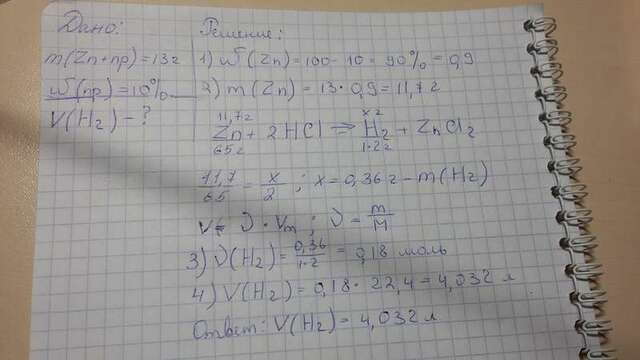 Дано:
m(Zn+пр)=13г
w(пр)=10%
V(H₂)-?
Решение:
1) w(Zn)=100-10=90%=0,9
2) m(Zn)=13·0,9=11,7г
11,7г x г
Zn+2HCl=H₂+ZnCl₂
65г 1·2г
11,7/65=x/2; x=0,36г-m(H₂)
V=ν·Vm; ν=m/M
3) ν(H₂)=0,36/1·2=0,18 моль
4) V(H₂)=0,18·22,4=4,032 л
Ответ: V(H₂)=4,032 л